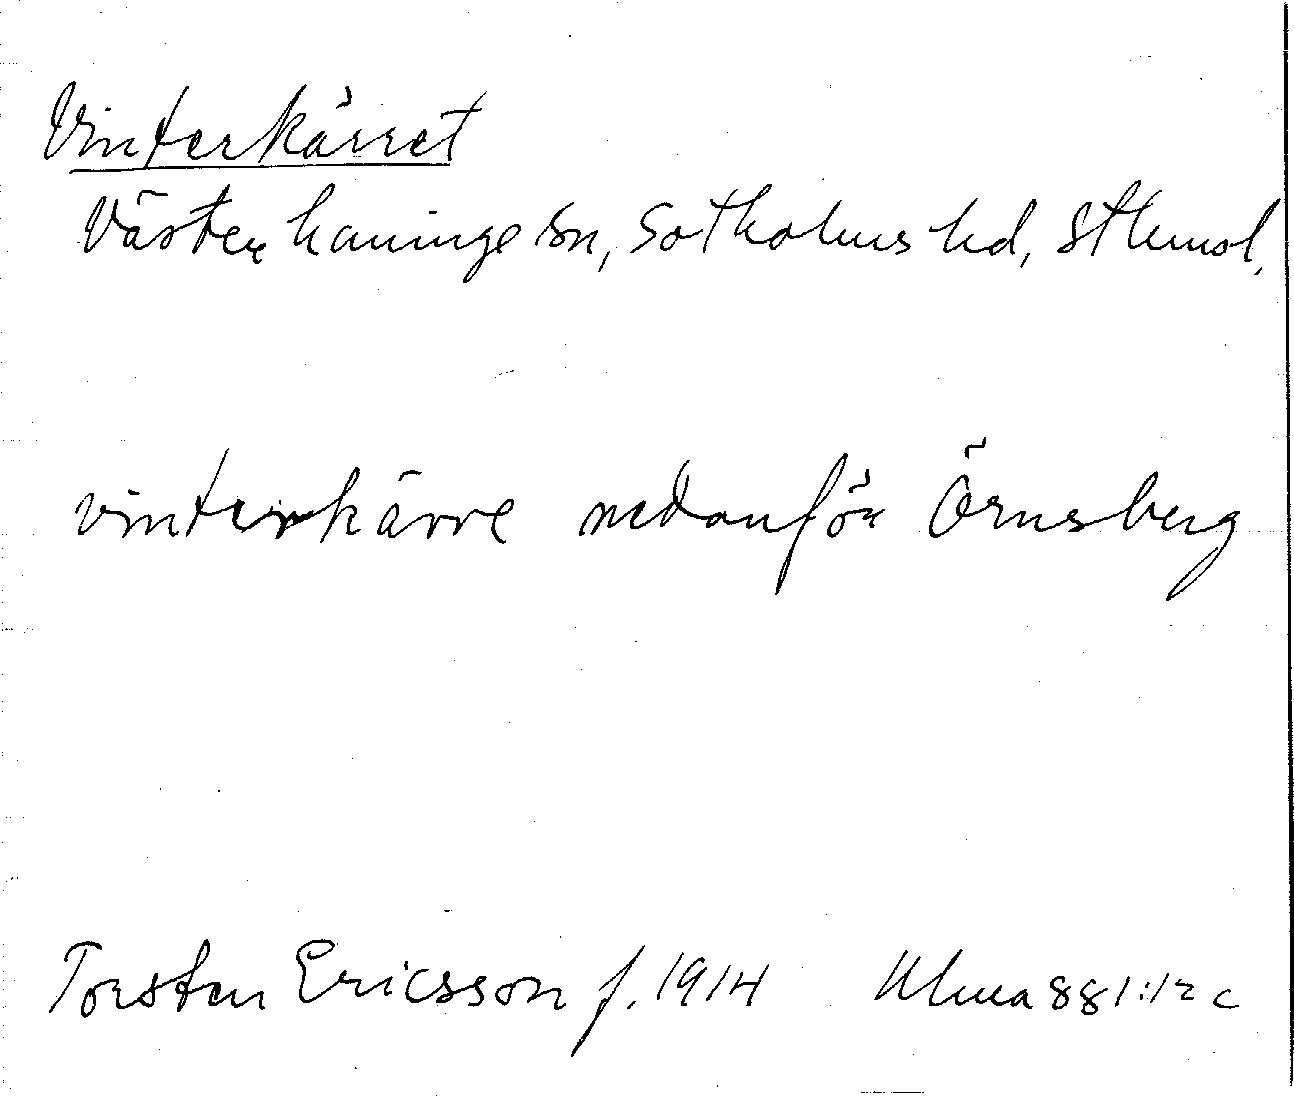 Vinterkärret
Västerhaninge sn, Sotholms hd, Sthmsl.
vinterkärre nedanför Örnsberg
Torsten Ericsson f. 1914 Ulma 881:12 c